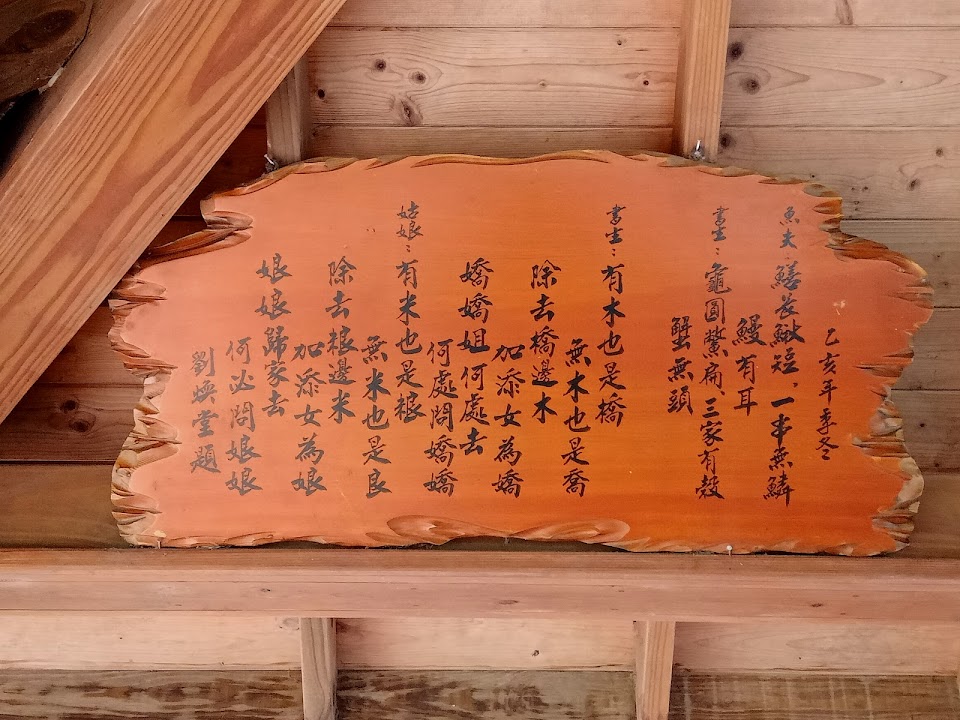 乙亥年季冬
魚夫：鱔長鰍短，一串無鱗
鰻有耳
書生：龜圓鱉扁，三家有殼
蟹無頭
書生：有木也是橋
無木也是喬
除去橋邊木
加添女為嬌
嬌嬌姐何處去
何處問嬌嬌
姑娘：有米也是粮
無米也是良
除去粮邊米
加添女為娘
娘娘歸家去
何必問娘娘
劉煥堂題